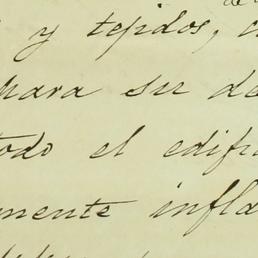 de
y tejidos, c
para su de
todo el edifi
mente infla